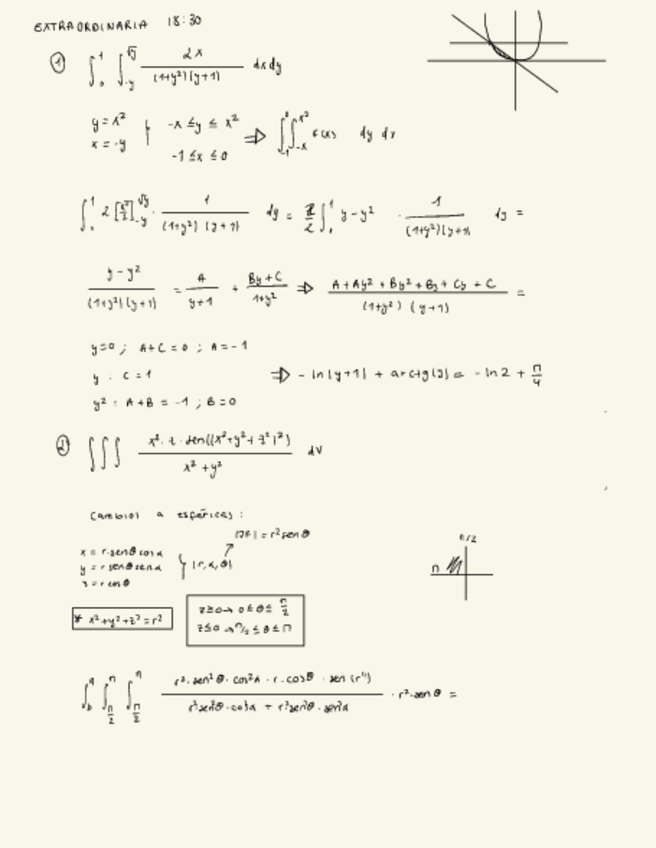 EXTRAORDINARIA 18:30
① ∫₀¹ ∫₋y^√y 2x / (1+y²)(y+1) dxdy
y = x²
x = -y
-x ≤ y ≤ x²
-1 ≤ x ≤ 0
⇒ ∫₋₁⁰ ∫₋ₓ^x² f(x) dy dx
∫₀¹ 2 [x²/2]₋y^√y · 1 / (1+y²)(y+1) dy = 2/2 ∫₀¹ y - y² · 1 / (1+y²)(y+1) dy =
y - y² / (1+y²)(y+1) = A / y+1 + By + C / 1+y² ⇒ A + Ay² + By² + By + Cy + C / (1+y²)(y+1) =
y=0 ; A+C = 0 ; A = -1
y : C = 1
⇒ - ln|y+1| + arctg(y) = - ln 2 + π/4
y² : A+B = -1 ; B = 0
② ∫∫∫ x² · z · sen((x²+y²+z²)²) / x² + y² dV
Cambios a esféricas :
|JF| = r² sen θ
x = r · senθ cosα
y = r senθ senα
z = r cosθ
(r, α, θ)
π/2
π
* x²+y²+z² = r²
z ≥ 0 → 0 ≤ θ ≤ π/2
z ≤ 0 → π/2 ≤ θ ≤ π
r² · sen² θ · cos²α · r · cosθ · sen (r⁴) / r² sen²θ · cos²α + r² sen²θ · sen²α · r² · sen θ =